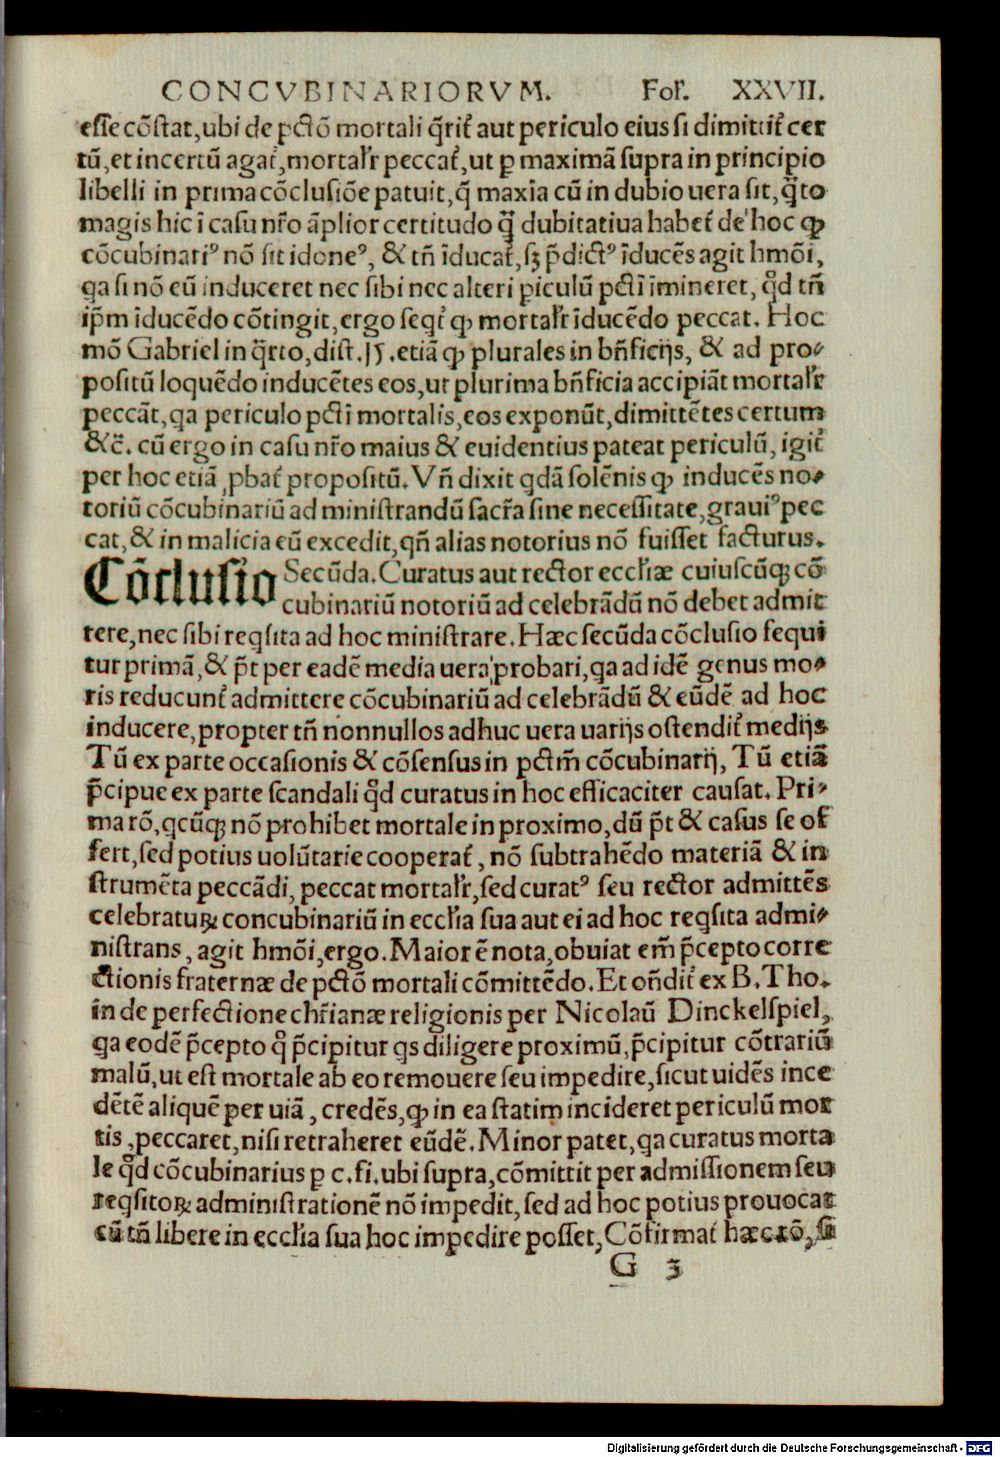 CONCVBINARIORVM. Fol'. XXVII.
esse cōstat,ubi de pctō mortali q̄rit᷑ aut periculo eius si dimittit᷑ cer
tū,et incertū agat᷑,mortalr̄ peccat᷑,ut ꝑ maximā supra in principio
libelli in prima cōclusiōe patuit,q̄ maxīa cū in dubio uera sit,q̄to
magis hic ī casu nr̄o āplior certitudo q̄ꝫ dubitatiua habet᷑ de hoc ꝙ
cōcubinariꝰ nō sit idoneꝰ, & tn̄ īducat᷑,sꝫ p̄dictꝰ īducēs agit hmōi,
qa si nō eū induceret nec sibi nec alteri ꝑiculū pcti īmineret, qd̄ tn̄
ip̄m īducēdo cōtingit,ergo seqt᷑ ꝙ mortalr̄ īducēdo peccat. Hoc
mō Gabriel in q̄rto,dist.15.etiā ꝙ plurales in bn̄ficijs, & ad pro⸗
positū loquēdo inducētes eos,ut plurima bn̄ficia accipiāt mortalr̄
peccāt,qa periculo pcti mortalis,eos exponūt,dimittētes certum
&c̄. cū ergo in casu nr̄o maius & euidentius pateat periculū, igit᷑
per hoc etiā ꝓbat᷑ propositū. Vn̄ dixit qdā solēnis ꝙ inducēs no⸗
toriū cōcubinariū ad ministrandū sacr̄a sine necessitate,grauiꝰ pec
cat,& in malicia eū excedit,qn̄ alias notorius nō fuisset facturus.
Cōclusio Secūda.Curatus aut rector eccl'iæ cuiuscūqꝫ cō
cubinariū notoriū ad celebrādū nō debet admit
tere,nec sibi reqsita ad hoc ministrare.Hæc secūda cōclusio sequi
tur primā,& p̄t per eadē media uera probari,qa ad idē genus mo⸗
ris reducunt᷑ admittere cōcubinariū ad celebrādū & eūdē ad hoc
inducere,propter tn̄ nonnullos adhuc uera uarijs ostendit᷑ medijs
Tū ex parte occasionis & cōsensus in pctm̄ cōcubinarij, Tū etiā
p̄cipue ex parte scandali qd̄ curatus in hoc efficaciter causat. Pri⸗
ma rō,qcūqꝫ nō prohibet mortale in proximo,dū p̄t & casus se of
fert,sed potius uolūtarie cooperat᷑, nō subtrahēdo materiā & in
strumēta peccādi, peccat mortalr̄,sed curatꝰ seu rector admittēs
celebraturꝝ concubinariū in eccl'ia sua aut ei ad hoc reqsita admi⸗
nistrans, agit hmōi,ergo.Maior ē nota,obuiat em̄ p̄cepto corre
ctionis fraternæ de pctō mortali cōmittēdo.Et on̄dit᷑ ex B.Tho.
in de perfectione chr̄ianæ religionis per Nicolaū Dinckelspiel,
qa eodē p̄cepto q̊ p̄cipitur qs diligere proximū,p̄cipitur cōtrariū
malū,ut est mortale ab eo remouere seu impedire,sicut uidēs ince
dētē aliquē per uiā, credēs,ꝙ in ea statim incideret periculū mor
tis,peccaret,nisi retraheret eūdē.Minor patet,qa curatus morta
le qd̄ cōcubinarius ꝑ c.fi.ubi supra,cōmittit per admissionem seu
reqsitoꝝ administrationē nō impedit,sed ad hoc potius prouocat
cū tn̄ libere in eccl'ia sua hoc impedire posset,Cōfirmat᷑ hæc rō,
G 3
Digitalisierung gefördert durch die Deutsche Forschungsgemeinschaft - DFG